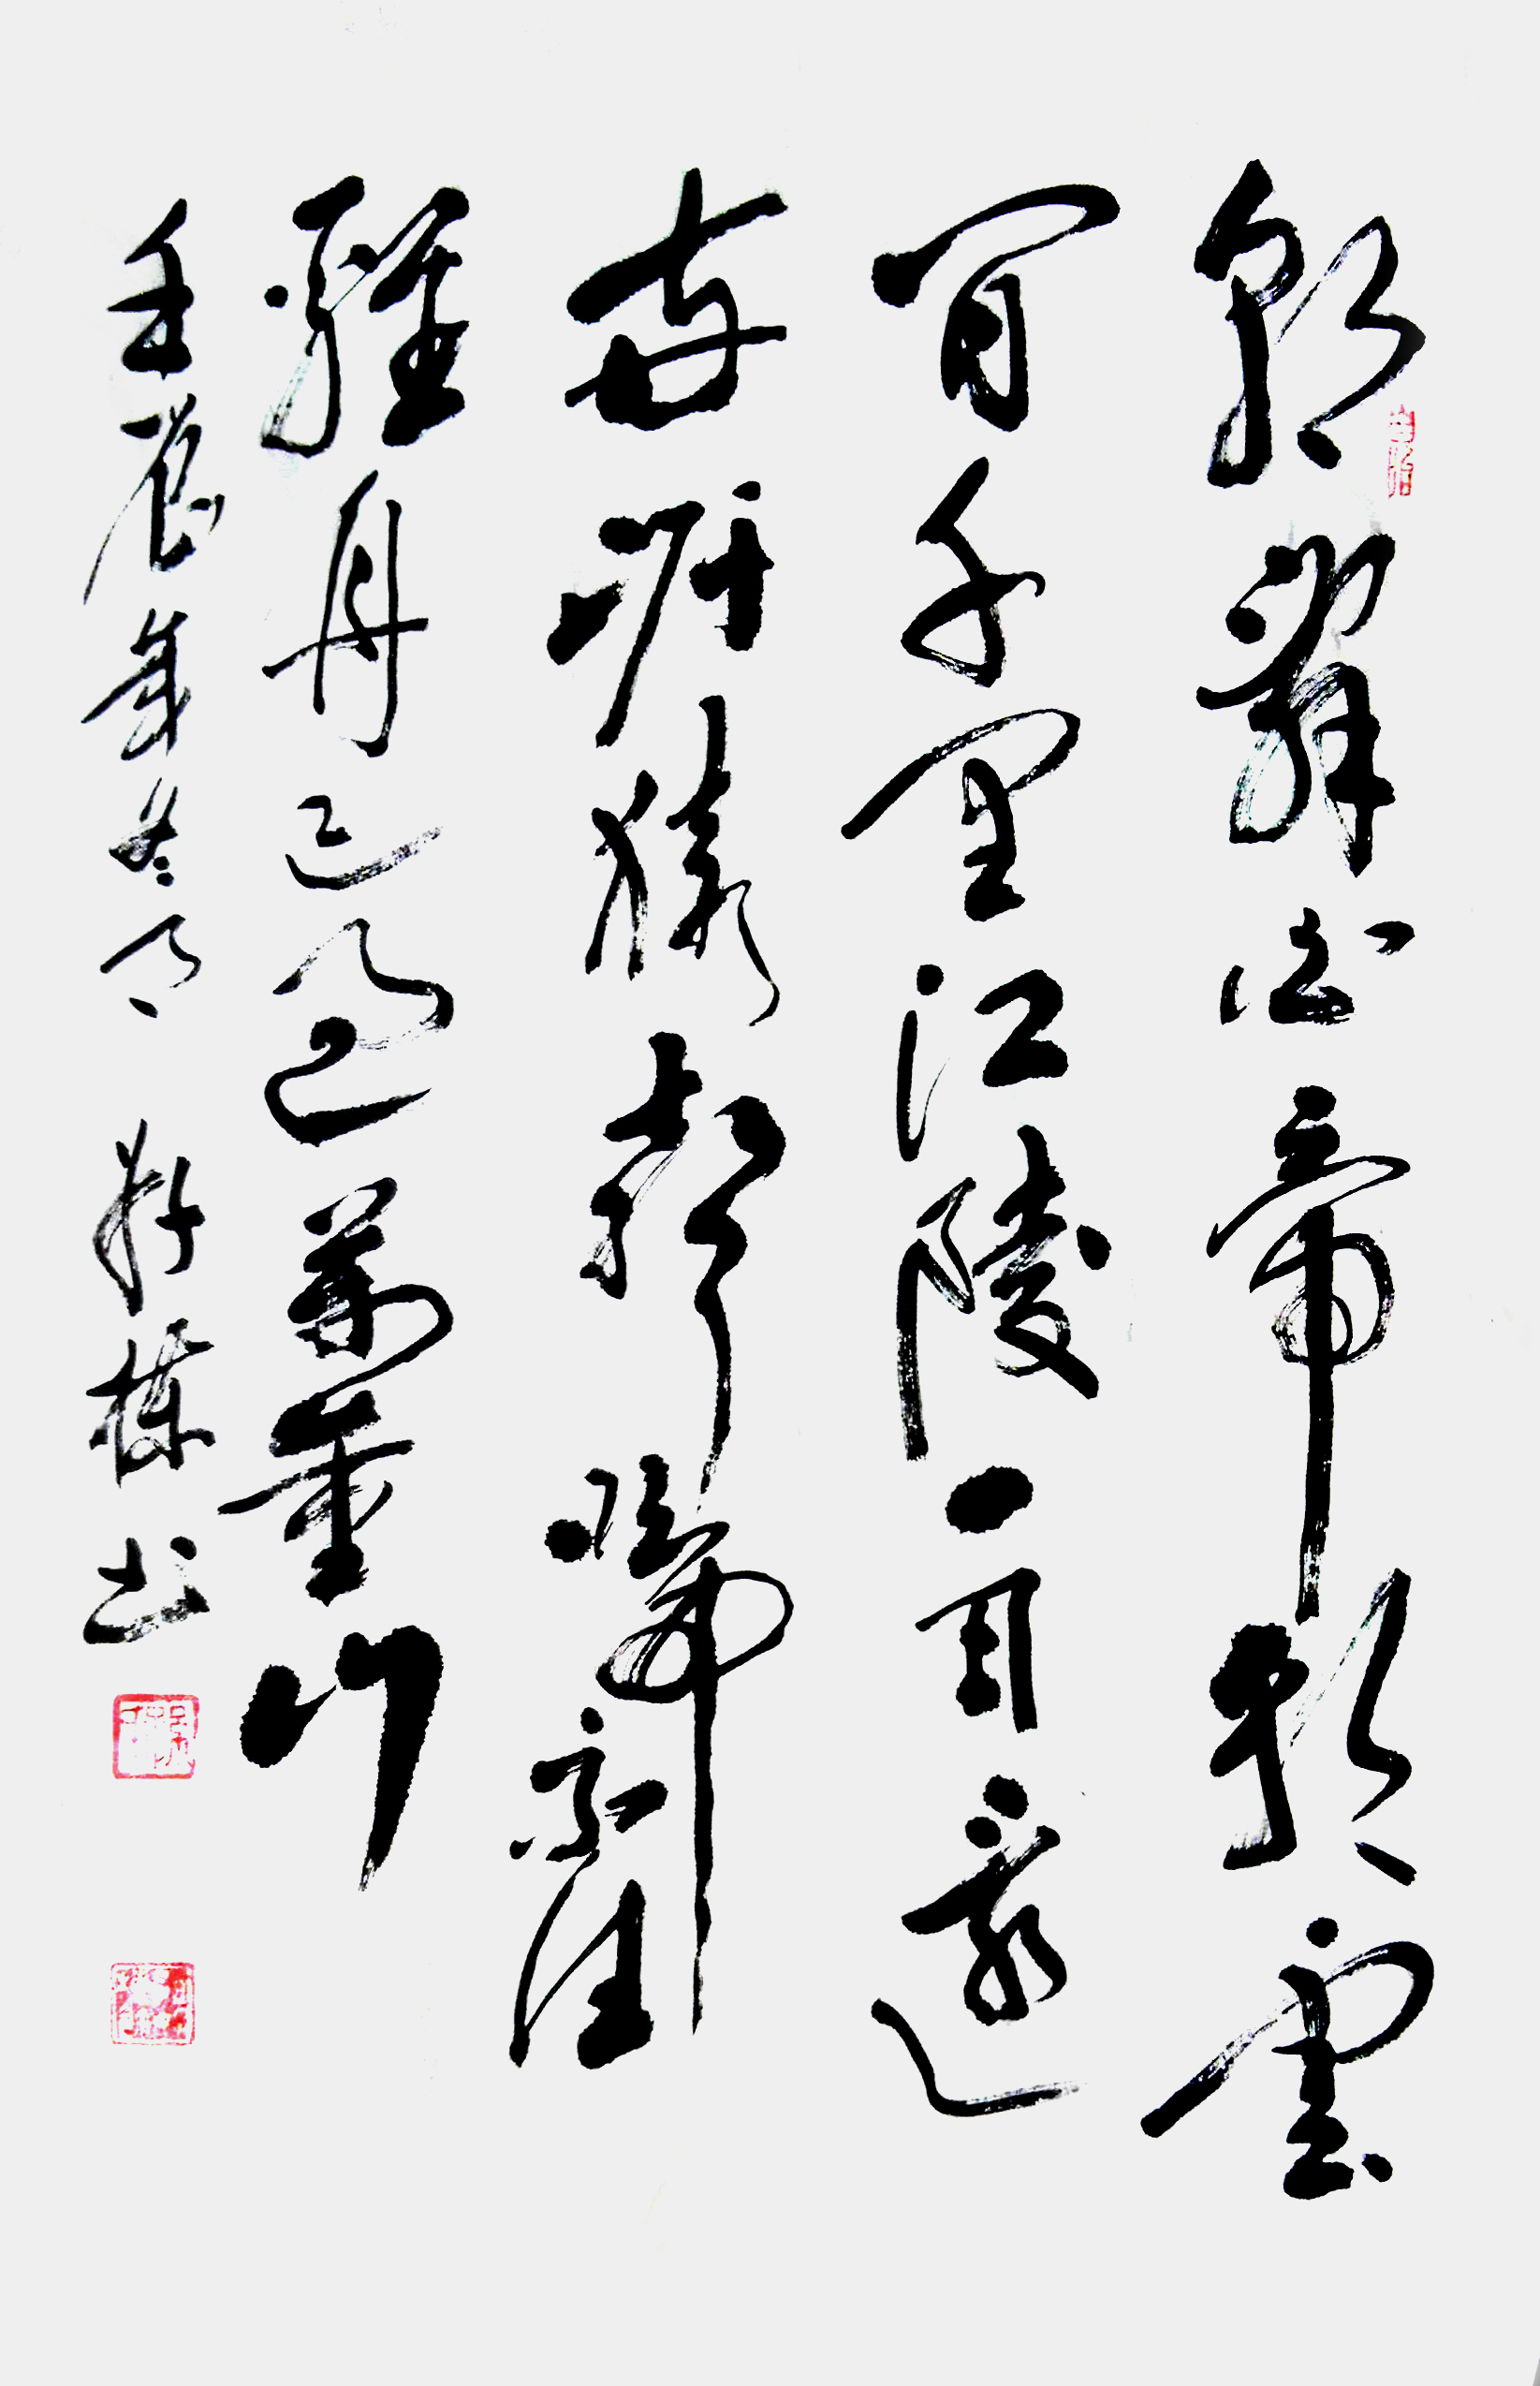 朝辭白帝彩雲
间千里江陵一日還
两岸猿聲啼不住
輕舟已過萬重山
壬辰年冬月 棟书